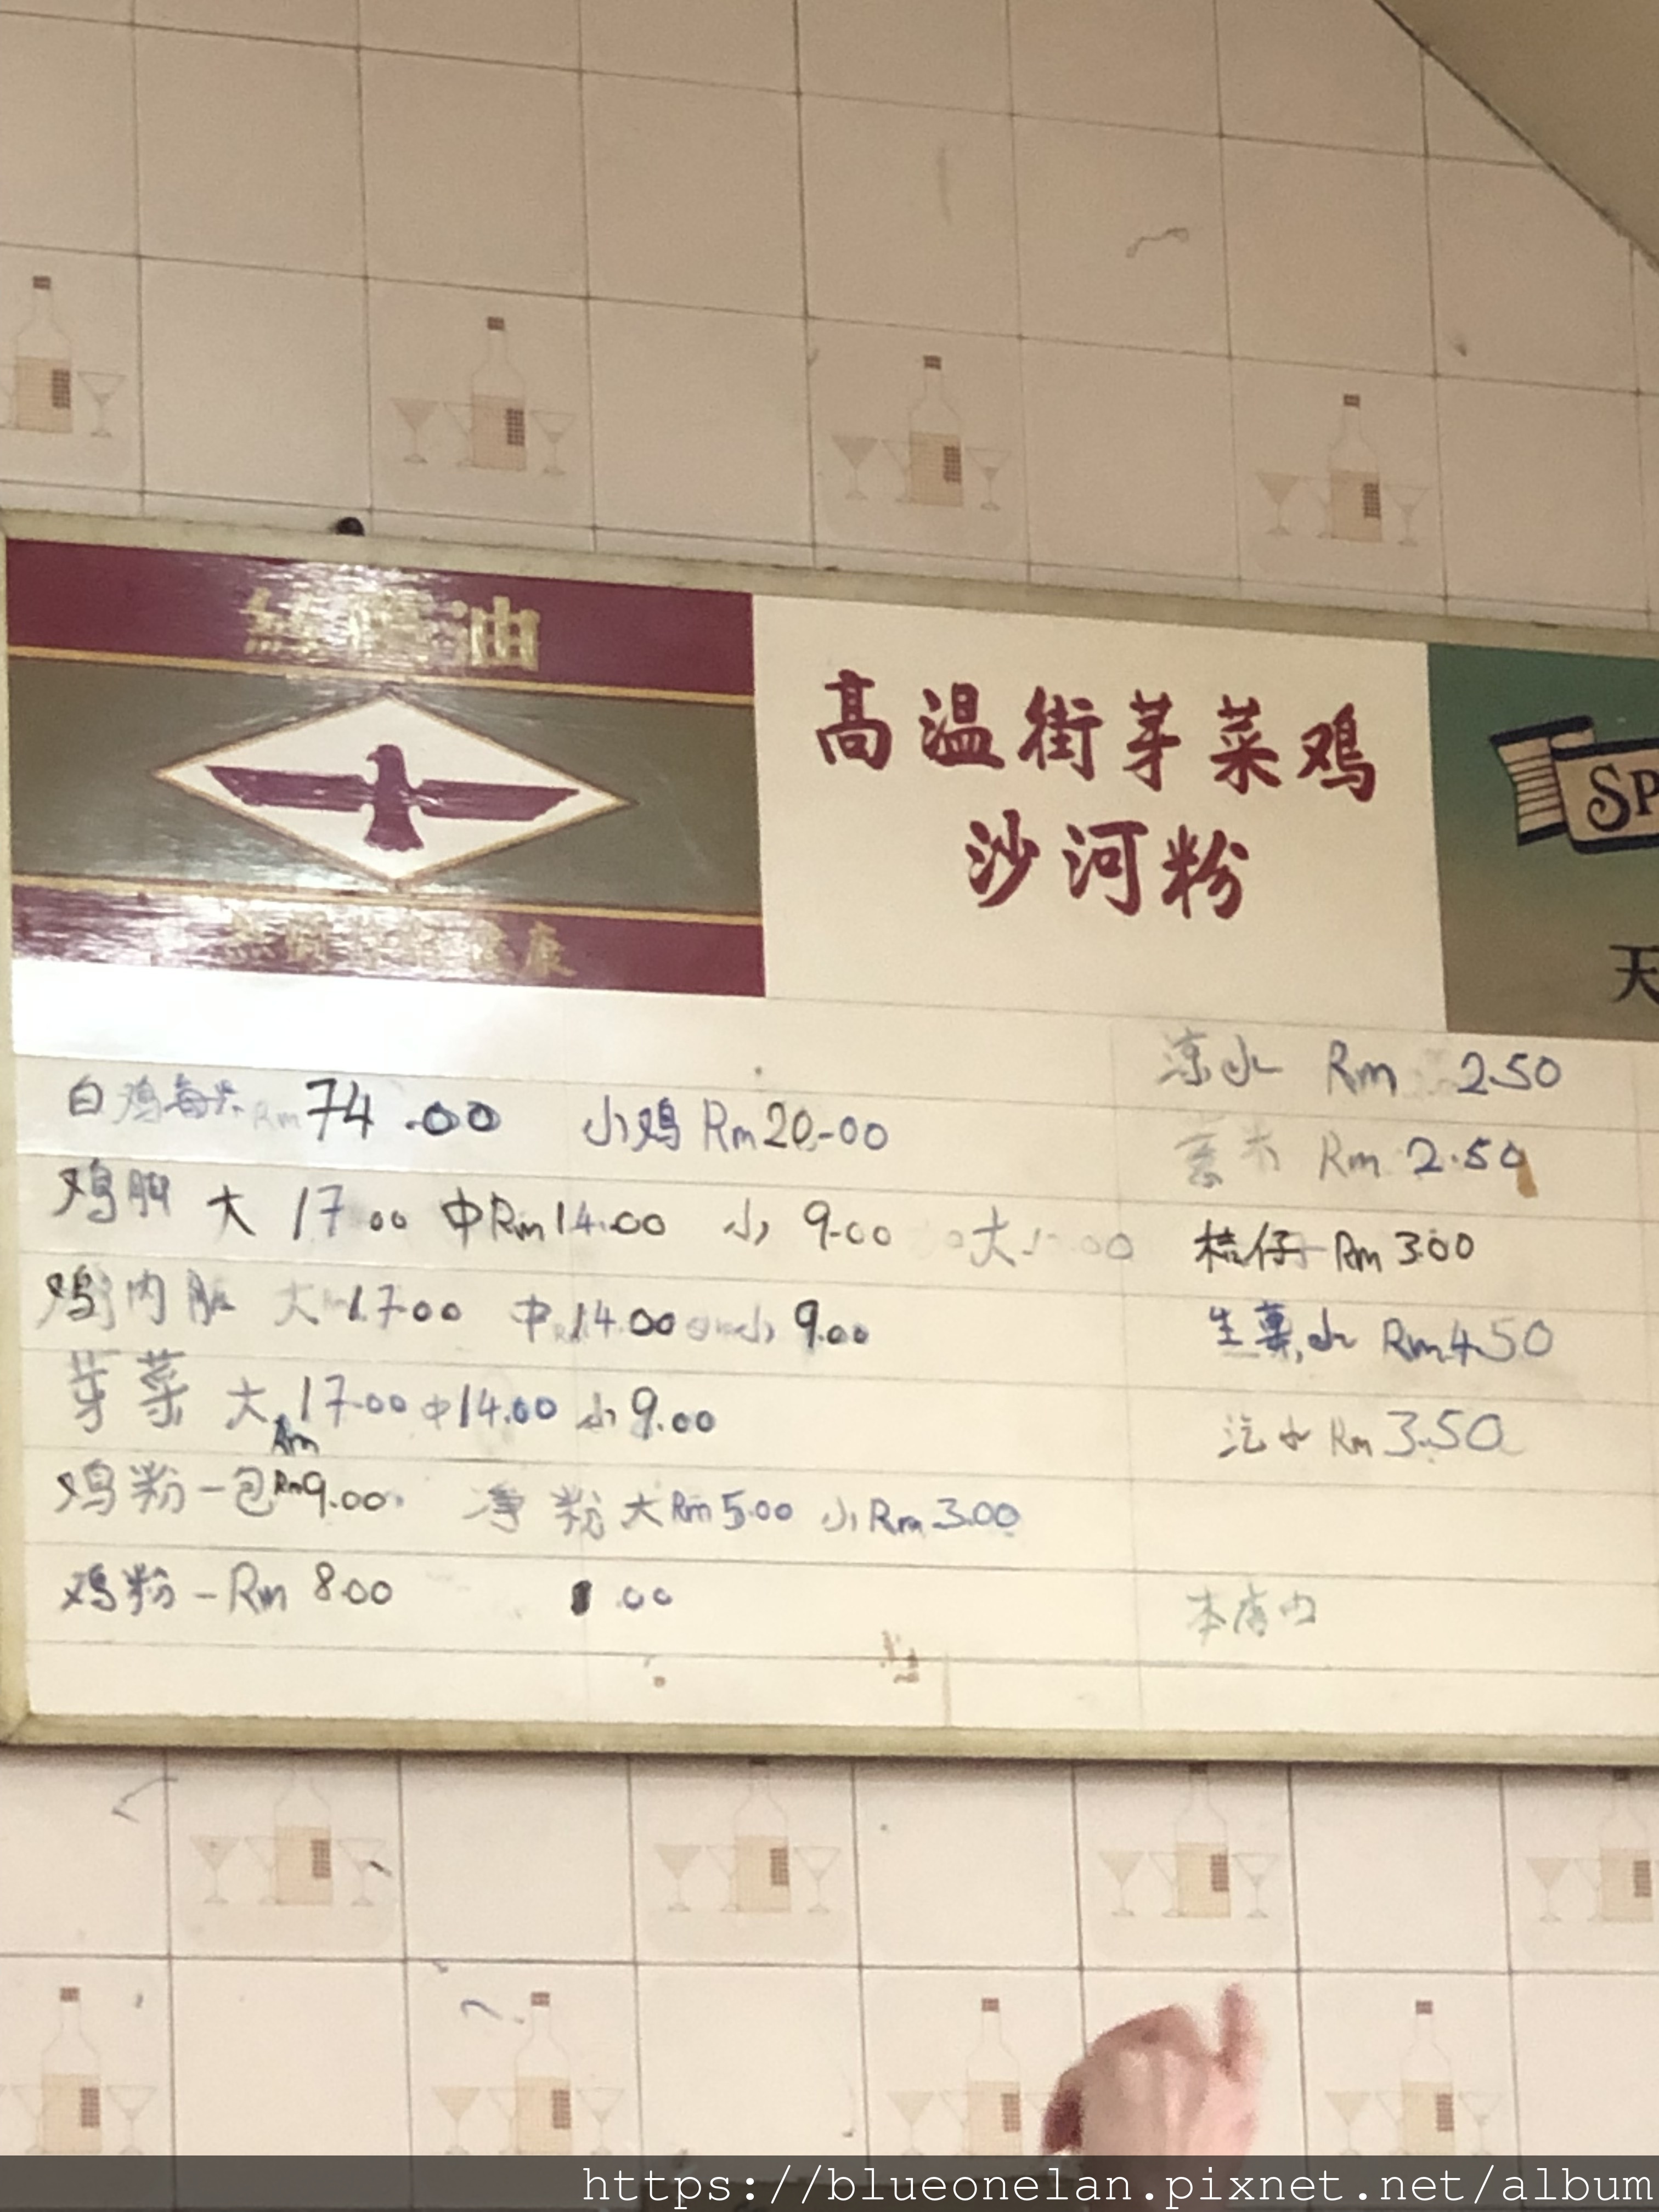 油
高温街芽菜鸡
沙河粉
SP
天
白鸡每只 Rm 74.00 小鸡 Rm 20-00
鸡脚 大 17.00 中 Rm 14.00 小 9.00 大
鸡内脏 大 17.00 中 14.00 小 9.00
芽菜 大 Rm 17.00 中 14.00 小 9.00
鸡粉一包 Rm 9.00 净粉 大 Rm 5.00 小 Rm 3.00
鸡粉 - Rm 8.00 .00
凉水 Rm 2.50
薏米 Rm 2.50
桔仔 Rm 3.00
生菓水 Rm 4.50
汽水 Rm 3.50
本店内
https://blueonelan.pixnet.net/album